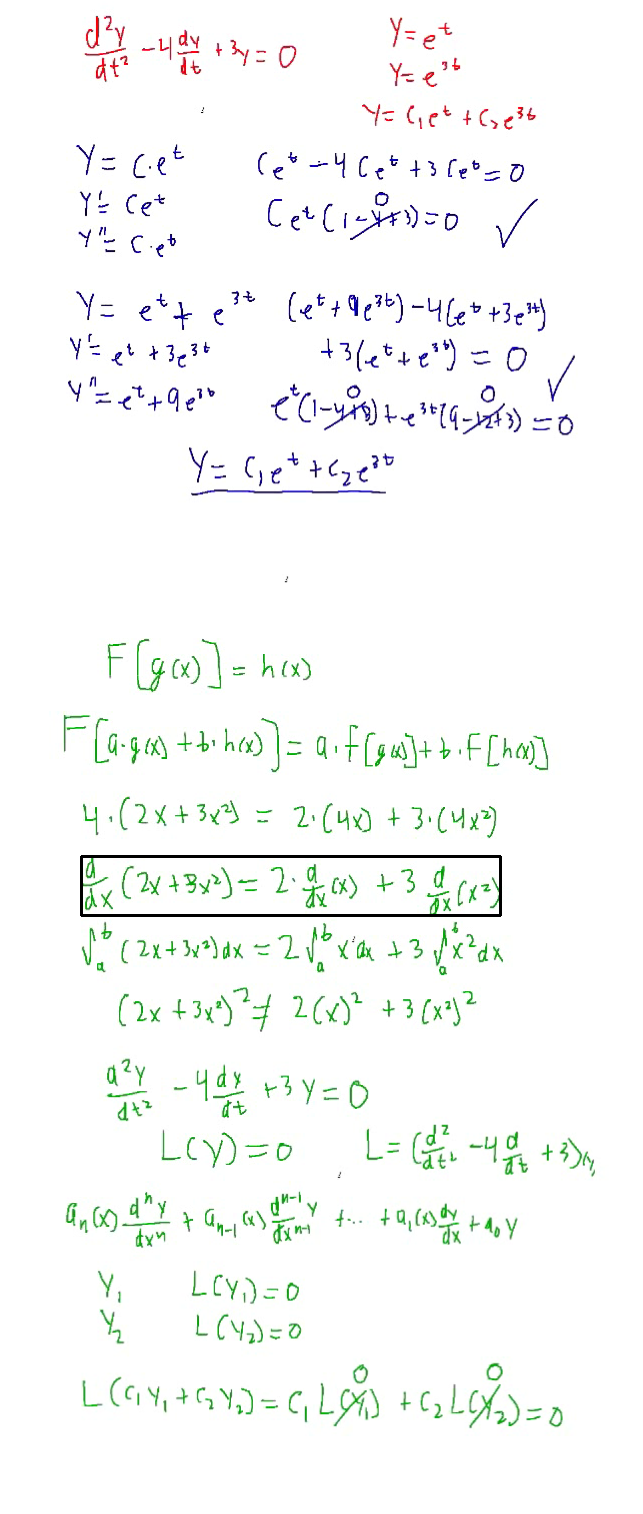 d²y/dt² - 4 dy/dt + 3y = 0
y = e^t
y = e^3t
y = C₁e^t + C₂e^3t
y = C·e^t
y' = Ce^t
y'' = C·e^t
Ce^t - 4Ce^t + 3Ce^t = 0
Ce^t(1-4+3) = 0 ✓
0
y = e^t + e^3t
y' = e^t + 3e^3t
y'' = e^t + 9e^3t
(e^t + 9e^3t) - 4(e^t + 3e^3t)
+3(e^t + e^3t) = 0 ✓
0 0
e^t(1-4+3) + e^3t(9-12+3) = 0
y = C₁e^t + C₂e^3t
F[g(x)] = h(x)
F[a·g(x) + b·h(x)] = a·F[g(x)] + b·F[h(x)]
4·(2x + 3x²) = 2·(4x) + 3·(4x²)
d/dx (2x + 3x²) = 2·d/dx(x) + 3 d/dx(x²)
∫_a^b (2x + 3x²)dx = 2∫_a^b x dx + 3∫_a^b x² dx
(2x + 3x²)² ≠ 2(x)² + 3(x²)²
d²y/dt² - 4 dy/dt + 3y = 0
L(y) = 0 L = (d²/dt² - 4 d/dt + 3)y
aₙ(x) dⁿy/dxⁿ + aₙ₋₁(x) dⁿ⁻¹y/dxⁿ⁻¹ + ... + a₁(x) dy/dx + a₀y
y₁ L(y₁) = 0
y₂ L(y₂) = 0
0 0
L(C₁y₁ + C₂y₂) = C₁L(y₁) + C₂L(y₂) = 0